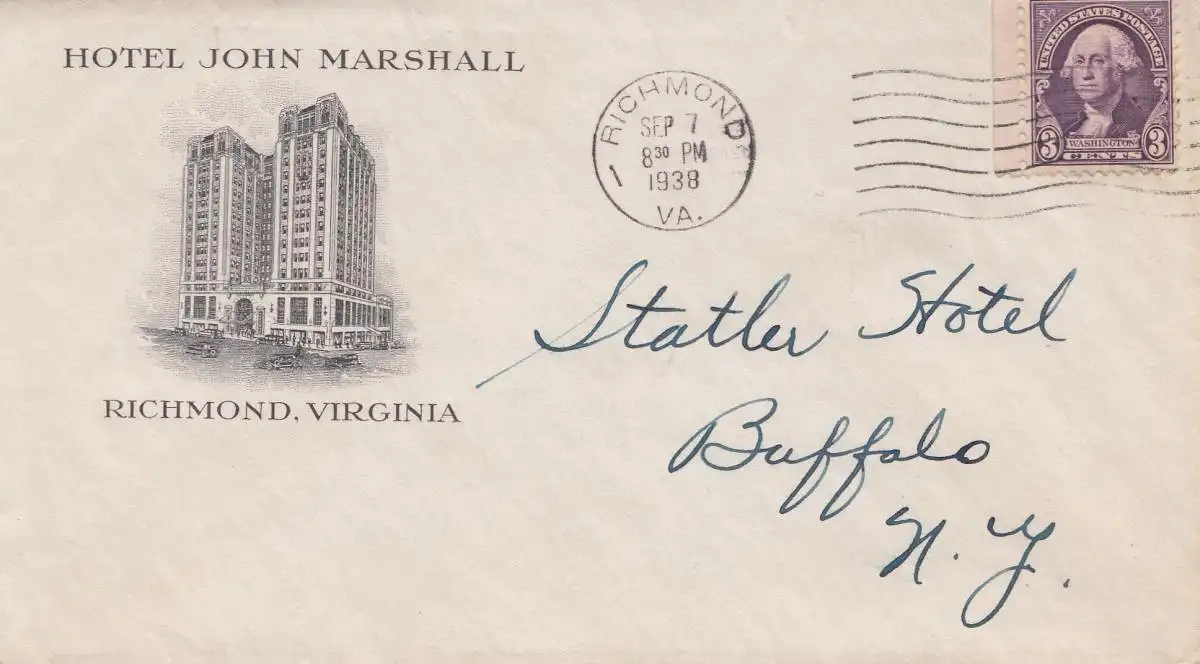 HOTEL JOHN MARSHALL
RICHMOND, VIRGINIA
RICHMOND
1
SEP 7
8³⁰ PM
1938
VA.
UNITED STATES POSTAGE
WASHINGTON
3 CENTS 3
Statler Hotel
Buffalo
N. Y.